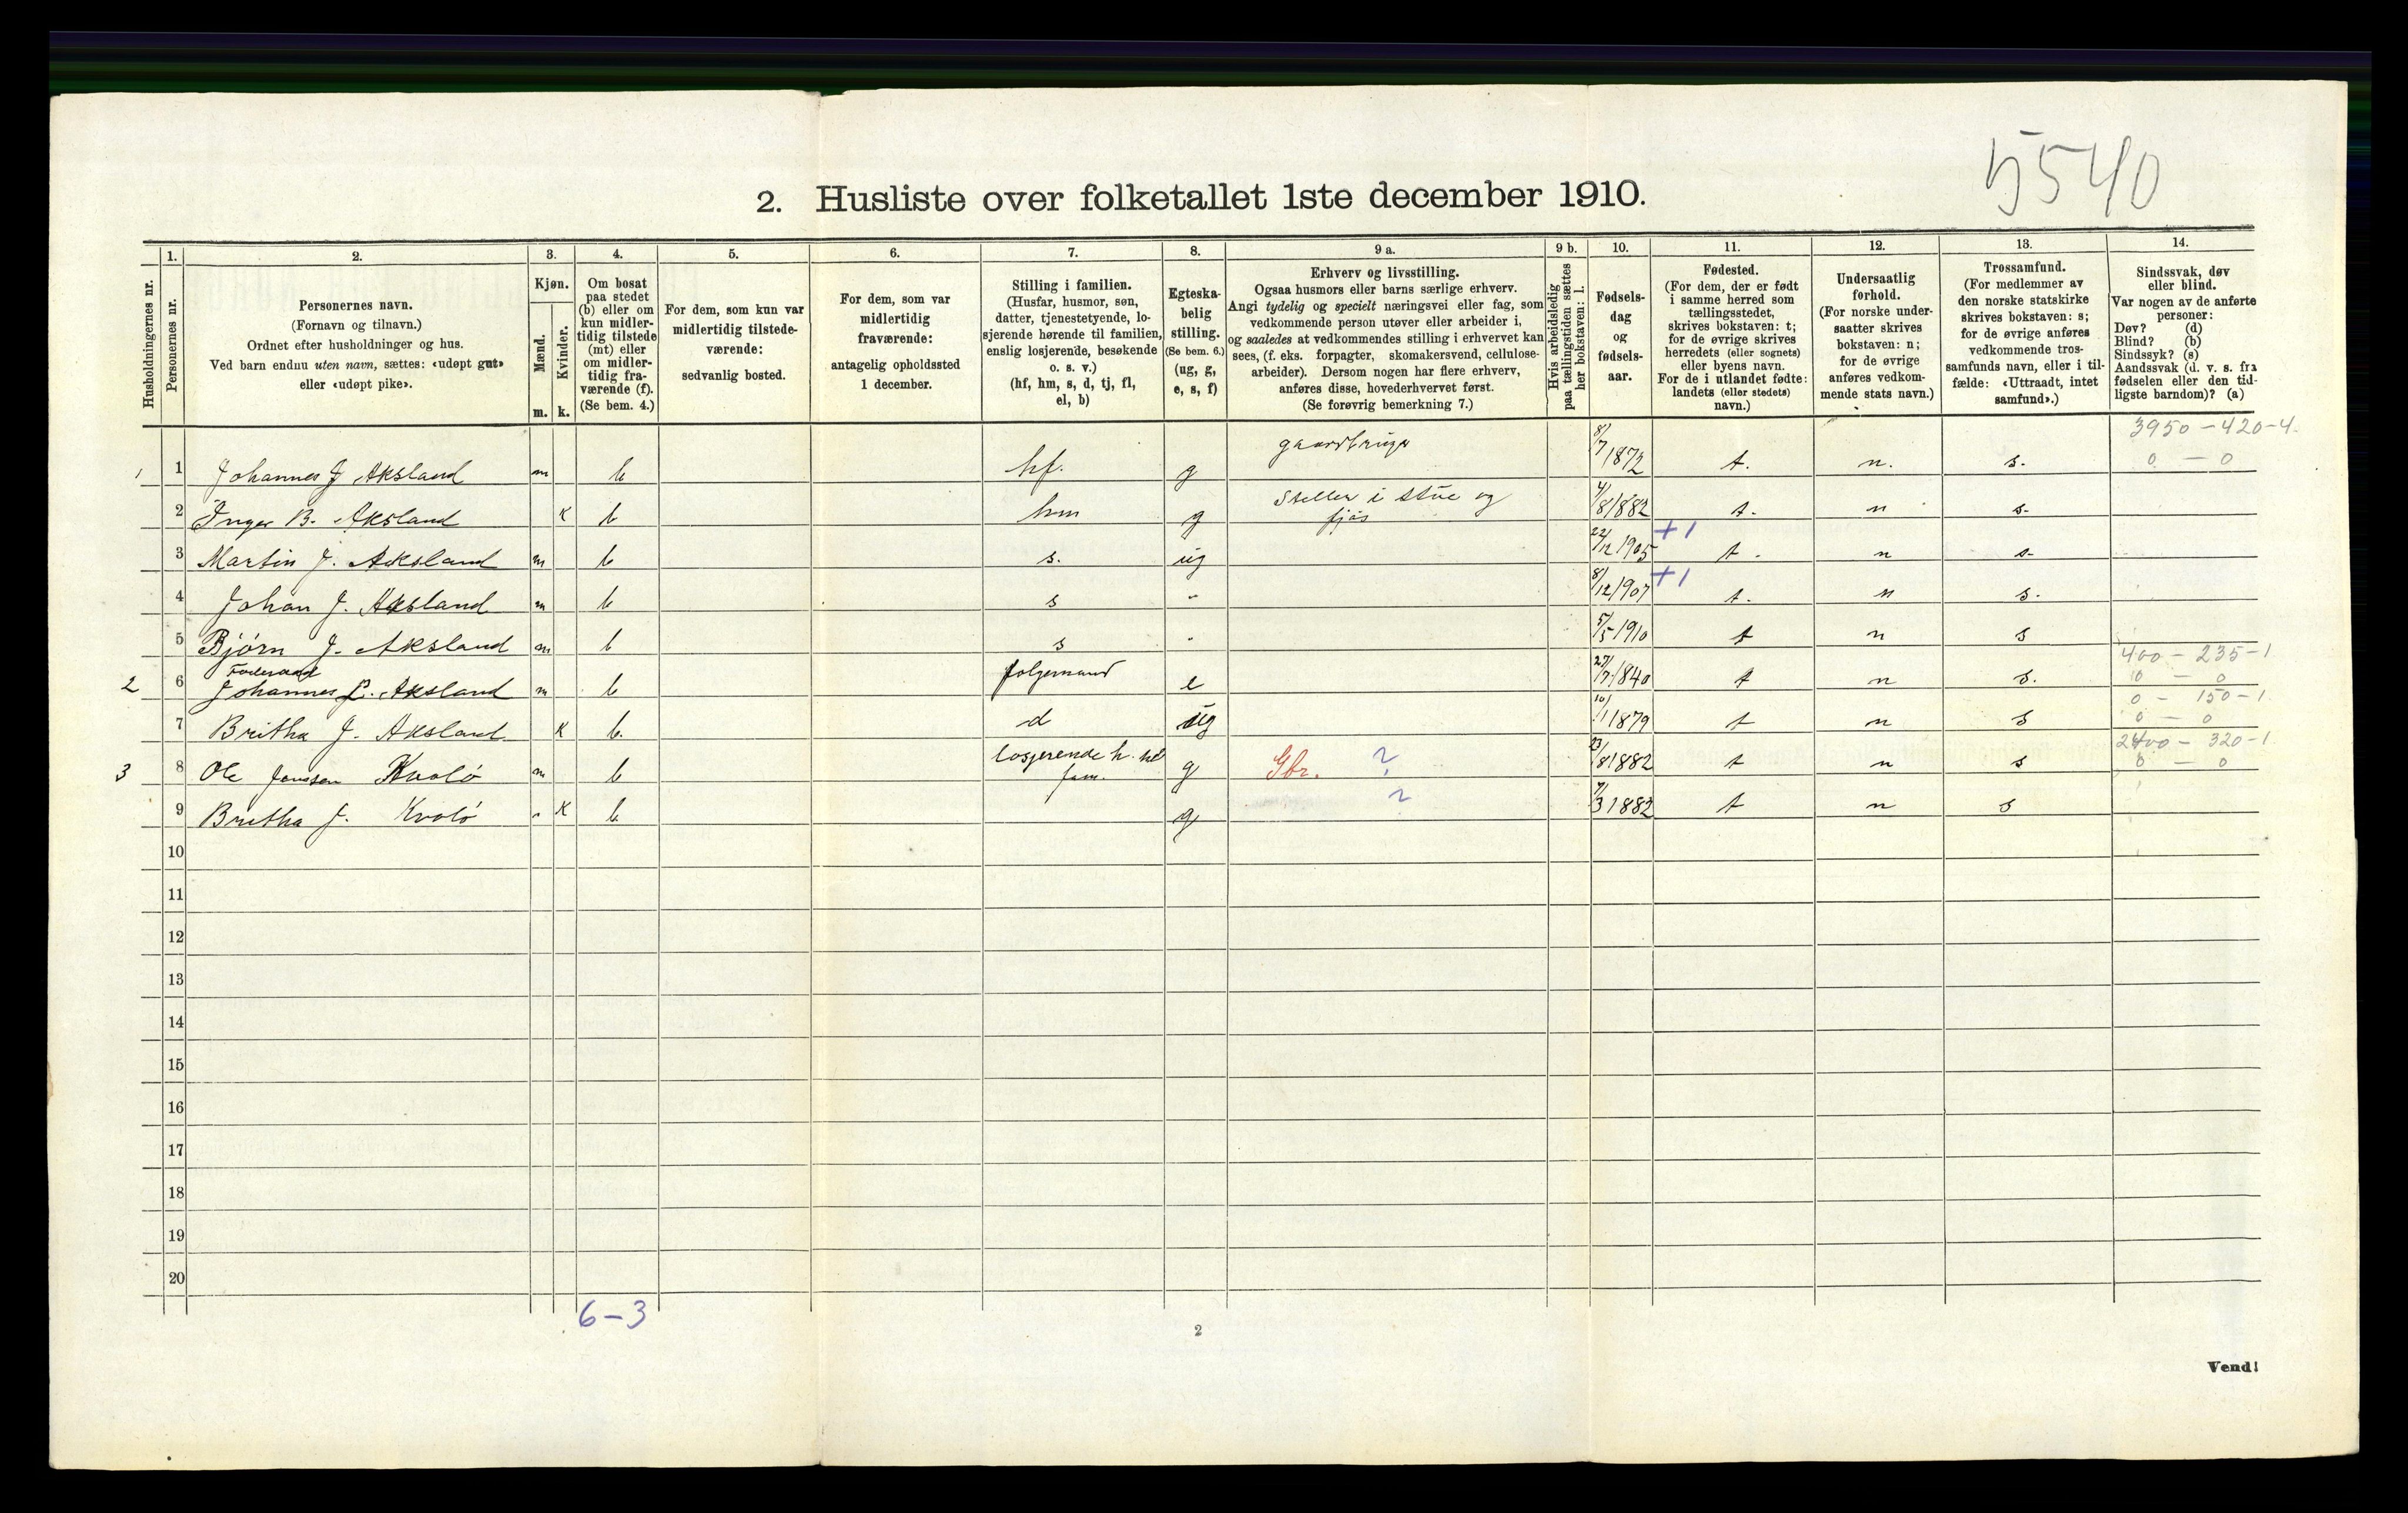 5540
2. Husliste over folketallet 1ste december 1910.
Husholdningernes nr.
1.
Personernes nr.
2.
Personernes navn.
(Fornavn og tilnavn.)
Ordnet efter husholdninger og hus.
Ved barn endnu uten navn, sættes: «udøpt gut»
eller «udøpt pike».
3.
Kjøn.
Mænd.
m.
Kvinder.
k.
4.
Om bosat
paa stedet
(b) eller om
kun midler-
tidig tilstede
(mt) eller
om midler-
tidig fra-
værende (f).
(Se bem. 4.)
5.
For dem, som kun var
midlertidig tilstede-
værende:
sedvanlig bosted.
6.
For dem, som var
midlertidig
fraværende:
antagelig opholdssted
1 december.
7.
Stilling i familien.
(Husfar, husmor, søn,
datter, tjenestetyende, lo-
sjerende hørende til familien,
enslig losjerende, besøkende
o. s. v.)
(hf, hm, s, d, tj, fl,
el, b)
8.
Egteska-
belig
stilling.
(Se bem. 6.)
(ug, g,
e, s, f)
9 a.
Erhverv og livsstilling.
Ogsaa husmors eller barns særlige erhverv.
Angi tydelig og specielt næringsvei eller fag, som
vedkommende person utøver eller arbeider i,
og saaledes at vedkommendes stilling i erhvervet kan
sees, (f. eks. forpagter, skomakersvend, cellulose-
arbeider). Dersom nogen har flere erhverv,
anføres disse, hovederhvervet først.
(Se forøvrig bemerkning 7.)
9 b.
Hvis arbeidsledig
paa tællingstiden sættes
her bokstaven: l.
10.
Fødsels-
dag
og
fødsels-
aar.
11.
Fødested.
(For dem, der er født
i samme herred som
tællingsstedet,
skrives bokstaven: t;
for de øvrige skrives
herredets (eller sognets)
eller byens navn.
For de i utlandet fødte:
landets (eller stedets)
navn.)
12.
Undersaatlig
forhold.
(For norske under-
saatter skrives
bokstaven: n;
for de øvrige
anføres vedkom-
mende stats navn.)
13.
Trossamfund.
(For medlemmer av
den norske statskirke
skrives bokstaven: s;
for de øvrige anføres
vedkommende tros-
samfunds navn, eller i til-
fælde: «Uttraadt, intet
samfund».)
14.
Sindssvak, døv
eller blind.
Var nogen av de anførte
personer:
Døv? (d)
Blind? (b)
Sindssyk? (s)
Aandssvak (d. v. s. fra
fødselen eller den tid-
ligste barndom)? (a)
3950 - 420-4.
1 1 Johannes J Aksland m b hf. g gaardbruger 8/7 1872 t. n. s. 0 - 0
2 Inger B. Aksland K b hm g Steller i stue og fjøs 4/8 1882 t. n s.
+1
3 Martin J. Aksland m b s. ug 22/12 1905 t. n s.
+1
4 Johan J. Aksland m b s " 8/12 1907 t. n s.
5 Bjørn J. Aksland m b s " 5/5 1910 t n s
400 - 235-1
Føderaad
2 6 Johannes L. Aksland m b folgemand e 27/7 1840 t n s. 0 - 0
0 - 150-1.
7 Britha J. Aksland K b d ug 10/1 1879 t n s 0 - 0
2400 - 320-1
3 8 Ole Jonssen Kvolø m b losjerende h. til fam. g Gbr. ? 23/8 1882 t n s 0 - 0
9 Bretha J. K K b g ? 7/3 1882 t n s
10
11
12
13
14
15
16
17
18
19
20
6-3
2
Vend!